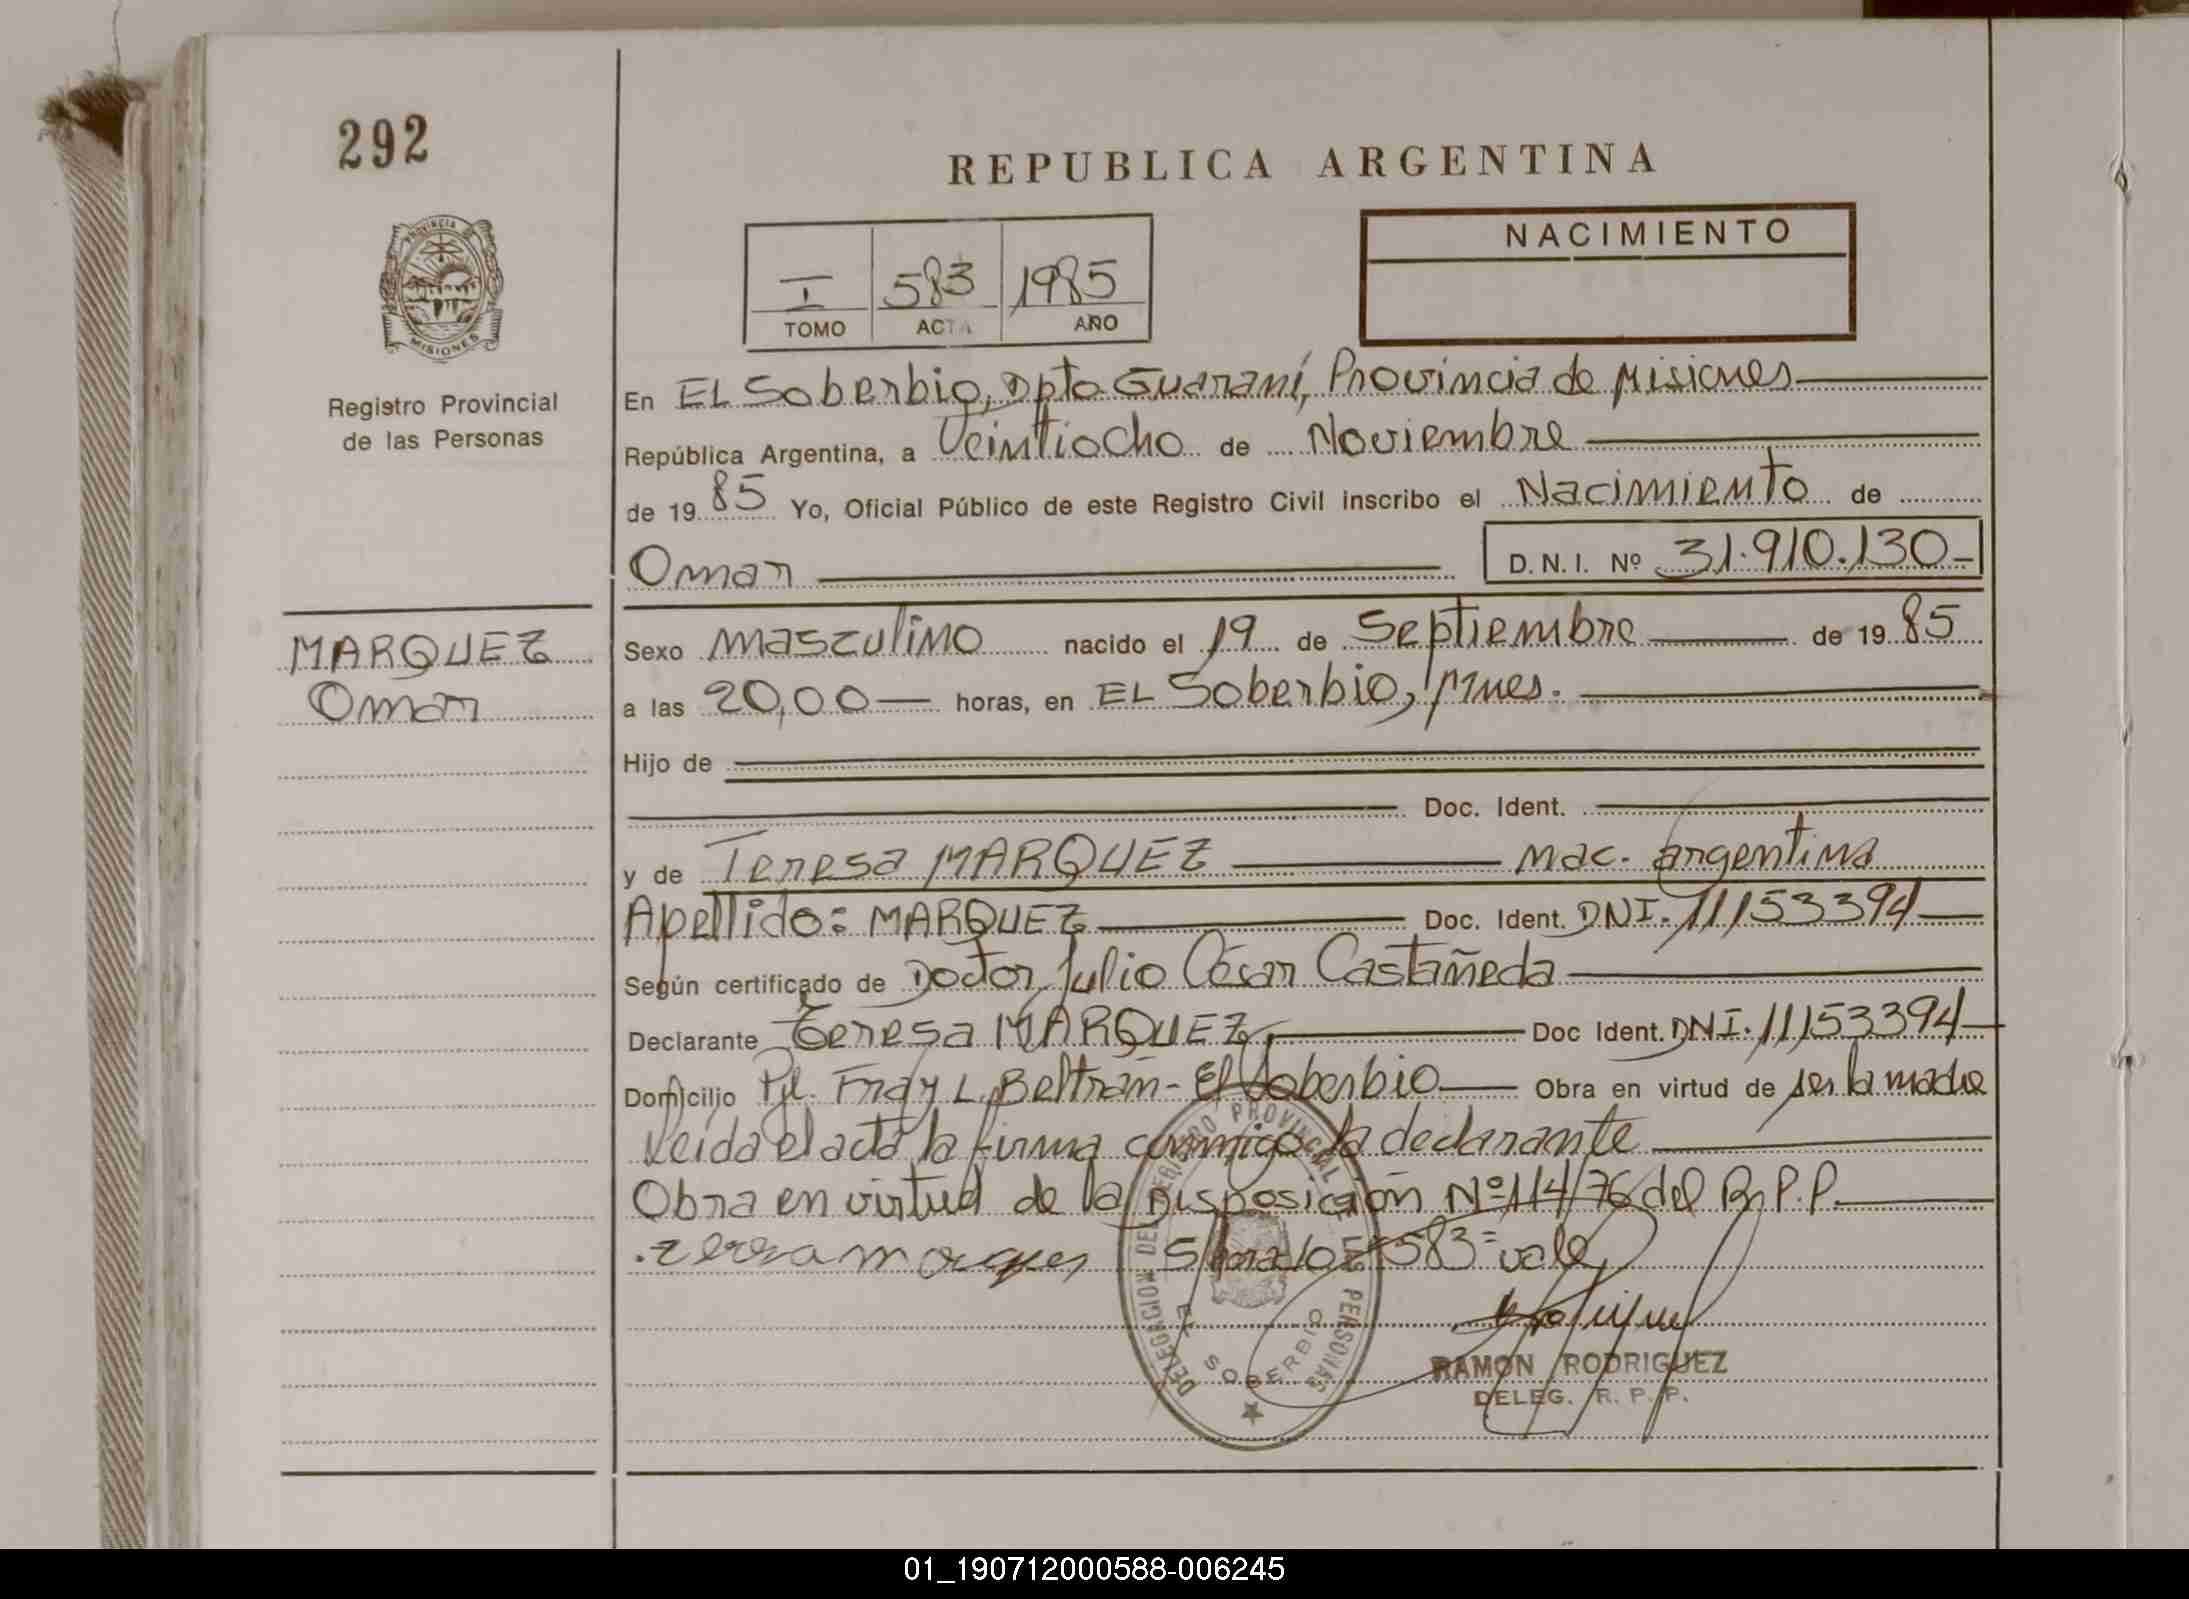 292
REPUBLICA ARGENTINA
I 583 1985
TOMO ACTA AÑO
NACIMIENTO
PROVINCIA DE MISIONES
Registro Provincial
de las Personas
En EL Soberbio, Dpto Guaraní, Provincia de Misiones
República Argentina, a Veintiocho de Noviembre
de 19 85 Yo, Oficial Público de este Registro Civil inscribo el Nacimiento de
Omar D. N. I. Nº 31.910.130-
MARQUEZ
Omar
Sexo masculino nacido el 19 de Septiembre de 19 85
a las 20,00 horas, en EL Soberbio, Mnes.
Hijo de
Doc. Ident.
y de Teresa MARQUEZ nac. argentina
Apellido: MARQUEZ Doc. Ident. DNI. 11153394
Según certificado de Doctor Julio César Castañeda
Declarante Teresa MARQUEZ Doc Ident. DNI. 11153394
Domicilio Pje. Fray L. Beltrán - El Soberbio Obra en virtud de ser la madre
Leída el acta la firma conmigo la declarante
Obra en virtud de la Disposición Nº 114/76 del R.P.P.
S/ 583= vale
DELEGACION DEL REGISTRO PROVINCIAL DE LAS PERSONAS
EL SOBERBIO
RAMON RODRIGUEZ
DELEG. R. P. P.
01_190712000588-006245